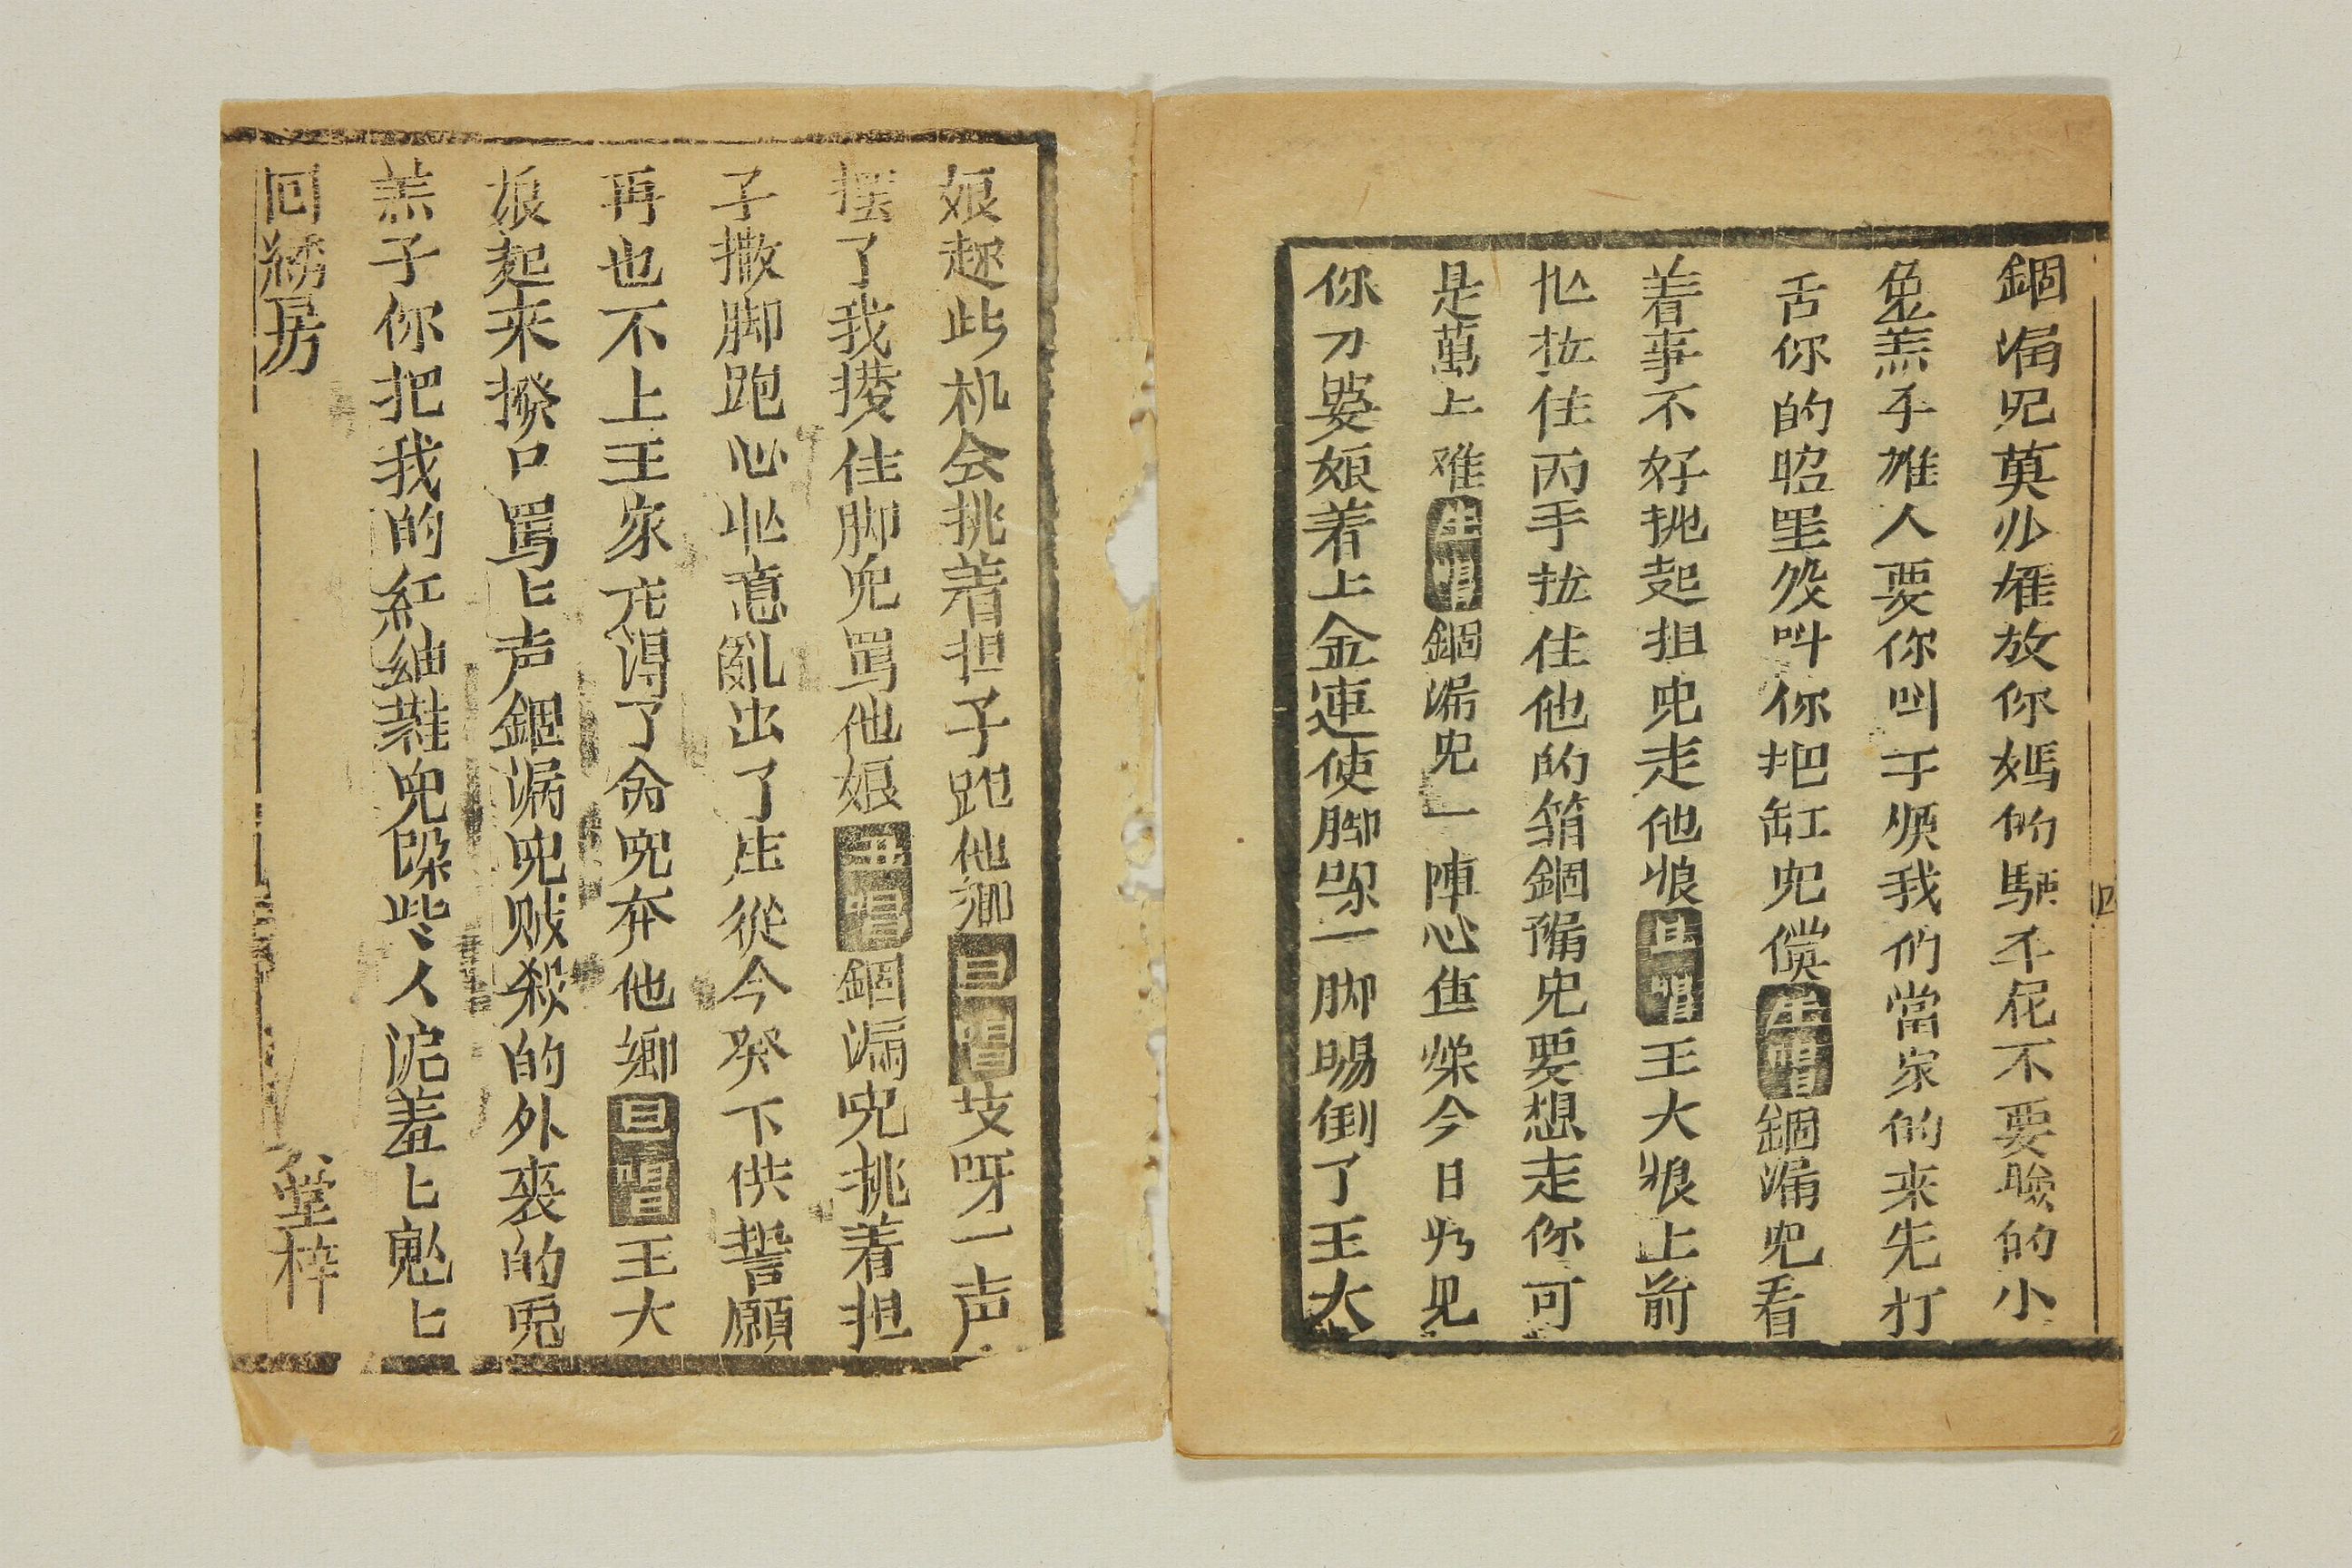 錮漏児莫少雄放你媽的馿不㞎不要臉的小
兔羔子雄人要你叫于順我們當家的来先打
舌你的昭里殁呌你把缸児償生唱錮漏児看
着事不好挑起担児走他娘旦唱王大娘上前
他拉住丙手拉住他的箱錮漏児要想走你可
是萬上难生唱錮漏児一陣心焦燥今日為見
你刀婁娘着上金連使脚踩一脚踢倒了王大
四
娘趂此机会挑着担子跑他鄉旦唱芆呀一声
摆了我接住脚児罵他娘丑唱錮漏児挑着担
子撒脚跑心慌意亂出了庄從今癸下供誓願
再也不上王家庄得了命児奔他鄉旦唱王大
娘起来撥口罵匕声錮漏児贼殺的外裘的兎
羔子你把我的紅紬鞋児跺些丶人活羞匕鬼匕
回綉房
堂梓